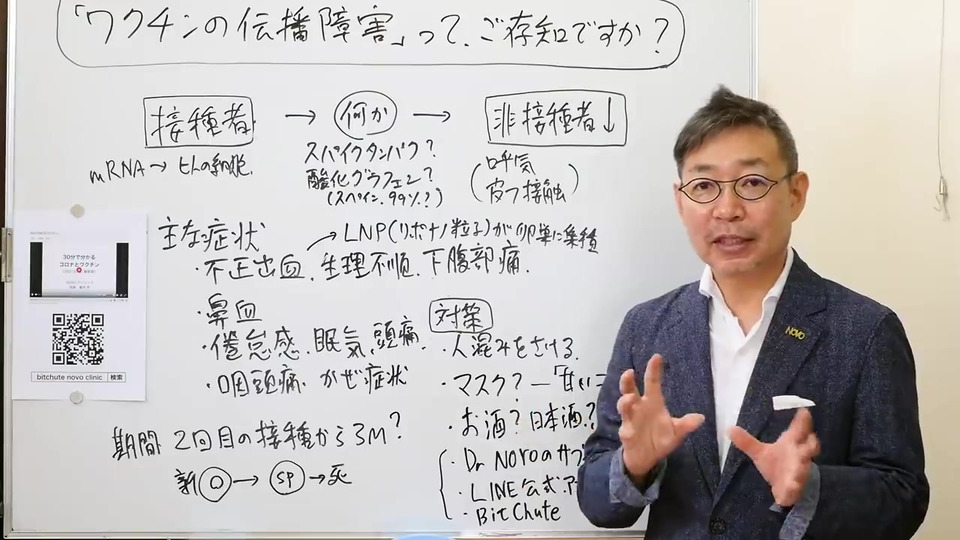 「ワクチンの伝播障害」って、ご存知ですか?
接種者 → 何か → 非接種者↓
mRNA→ヒトの細胞
スパイクタンパク?
酸化グラフェン?
(スペイン、99%?)
(呼気
皮フ接触)
主な症状
LNP(リポナノ粒子)が卵巣に集積
・不正出血、生理不順、下腹部痛、
・鼻血
・倦怠感、眠気、頭痛、
・咽頭痛、かぜ症状
期間 2回目の接種から3M?
新 → SP → 死
対策
・人混みをさける
・マスク?
・お酒?日本酒?
・Dr Novoの
・LINE公式
・BitChute
30分で分かる
コロナとワクチン
bitchute novo clinic 検索
NOVO